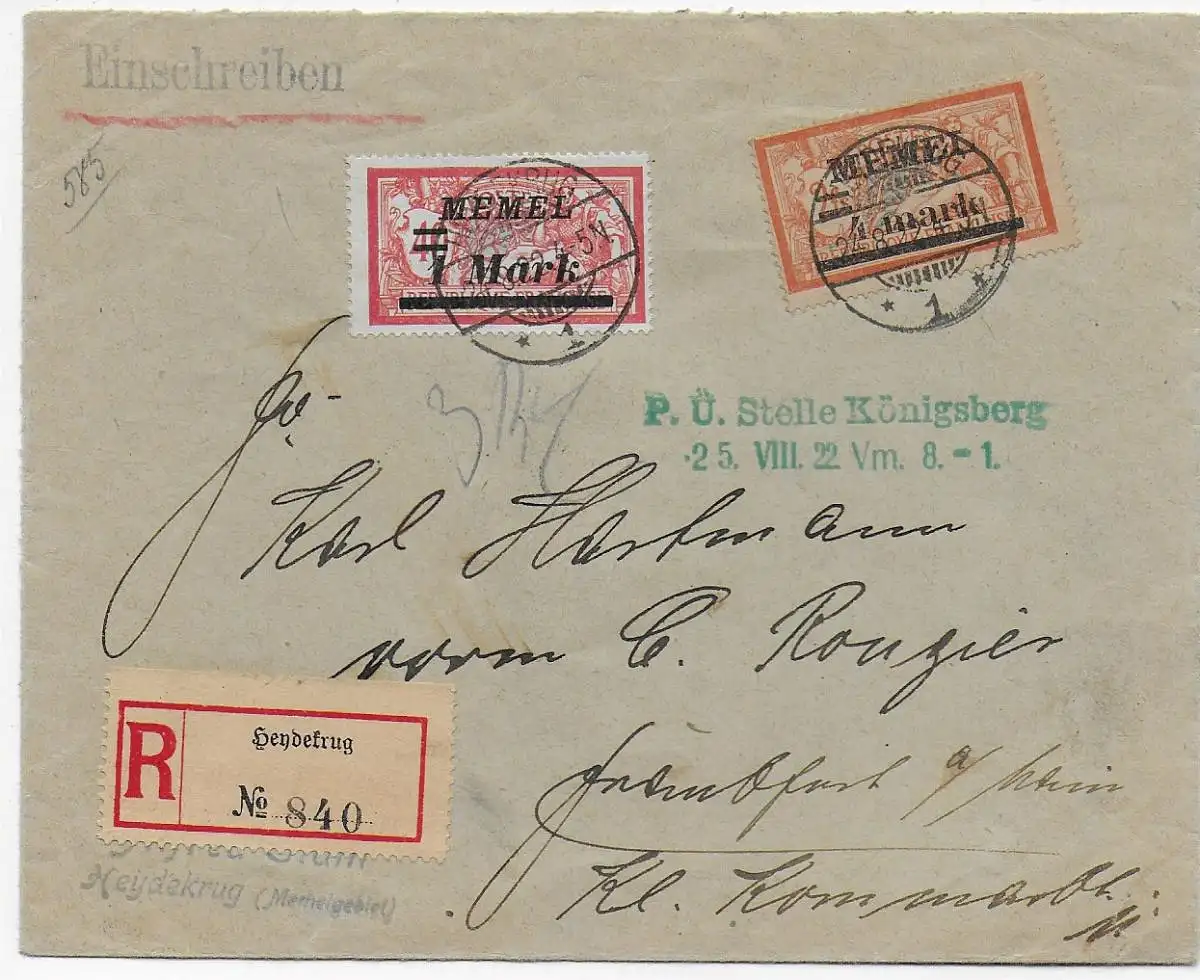 Einschreiben
585
MEMEL
1 Mark
MEMEL
4 mark
24.8.22.4-5N.
* 1 *
P. Ü. Stelle Königsberg
·25. VIII. 22 Vm. 8.-1.
Karl Hartmann
vorm C. Rougier
Frankfurt a/Main
Kl. Kornmarkt
R
Heydekrug
No 840
Heydekrug (Memelgebiet)